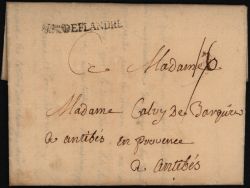 DEFLANDRE
A Madame
Madame Calvy de
a antibes en provence
a antibes